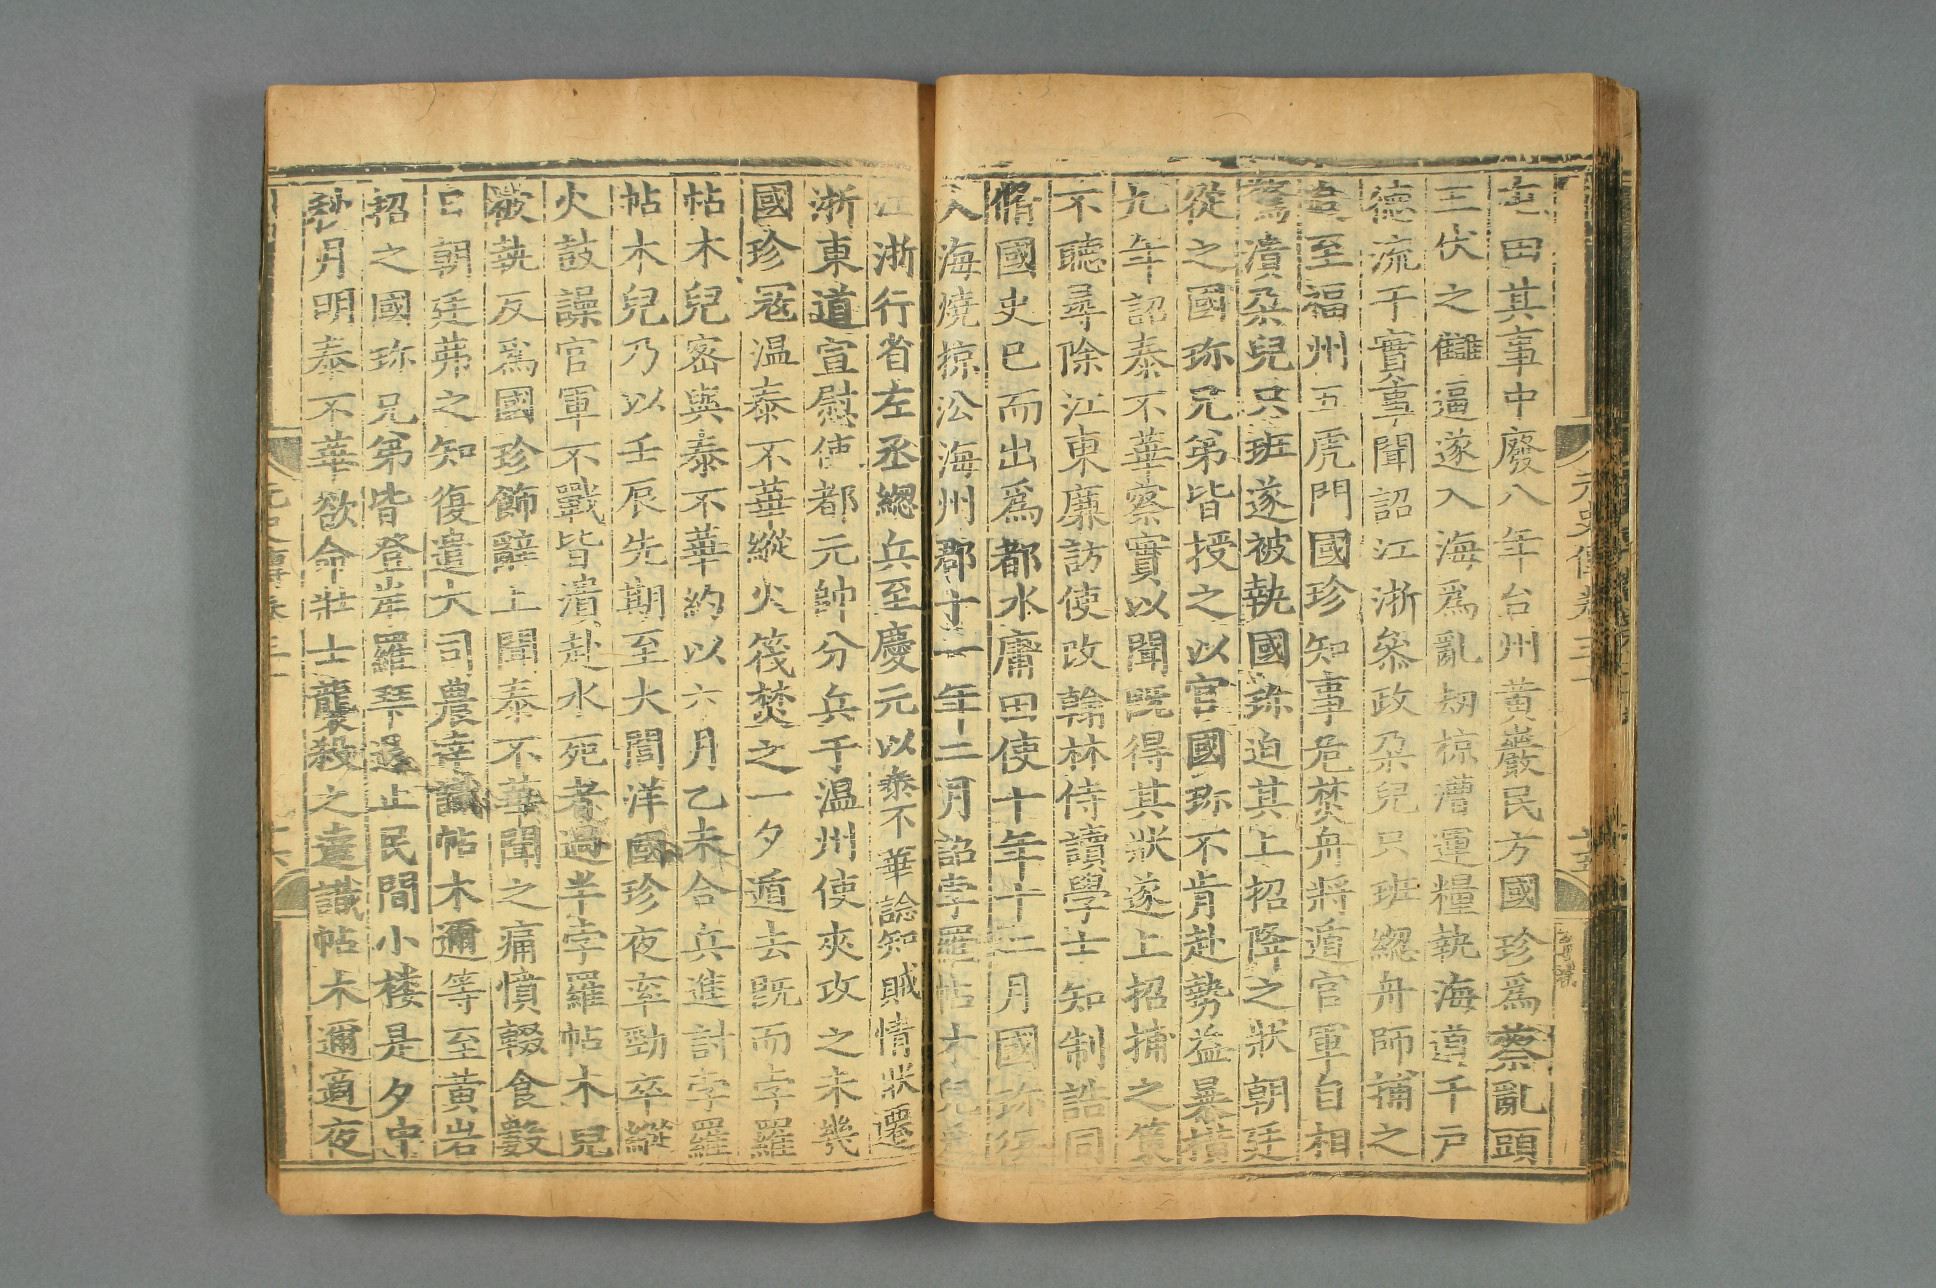 屯田其事中廢八年台州黃巖民方國珍爲蔡亂頭
王伏之讎逼遂入海爲亂刼掠漕運糧執海道千戶
德流于實事聞詔江浙叅政朶兒只班緫舟師捕之
追至福州五虎門國珍知事危焚舟將遁官軍自相
驚潰朶兒只班遂被執國珎迫其上招降之狀朝廷
從之國珎兄弟皆授之以官國珎不肯赴勢益暴橫
九年詔泰不華察實以聞旣得其狀遂上招捕之策
不聽尋除江東廉訪使改翰林侍讀學士知制誥同
脩國史已而出爲都水庸田使十年十二月國珎復
入海燒掠㳂海州郡十一年二月詔孛羅帖木兒爲
江浙行省左丞緫兵至慶元以泰不華諗知賊情狀遷
浙東道宣慰使都元帥分兵于温州使夾攻之未幾
國珍冦温泰不華縱火筏焚之一夕遁去旣而孛羅
帖木兒宻與泰不華約以六月乙未合兵進討孛羅
帖木兒乃以壬辰先期至大閭洋國珍夜率勁卒縱
火鼓譟官軍不戰皆潰赴水死者過半孛羅帖木兒
被執反爲國珍飾辭上聞泰不華聞之痛憤輟食數
日朝廷弗之知復遣大司農達識帖木邇等至黃岩
招之國珎兄弟皆登岸羅拜退止民間小楼是夕中
秋月明泰不華欲命壯士襲殺之達識帖木邇適夜
元史傳卷三十
十五
元史傳卷三十
十六